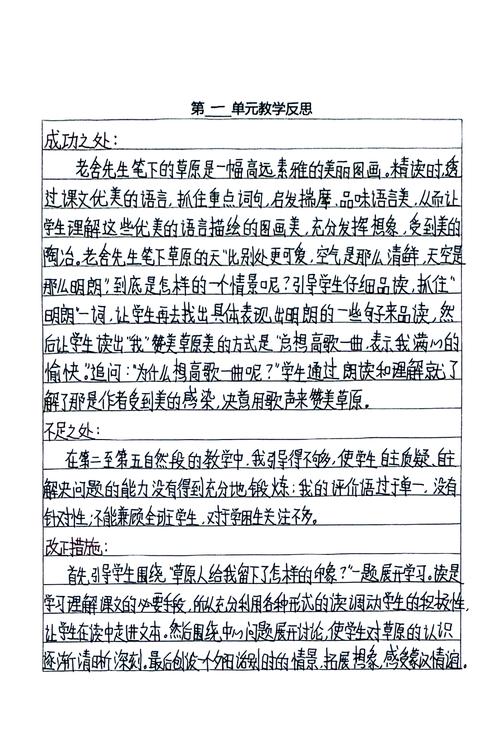 第一单元教学反思
成功之处：
老舍先生笔下的草原是一幅高远素雅的美丽图画。精读时，透
过课文优美的语言，抓住重点词句，启发揣摩，品味语言美，从而让
学生理解这些优美的语言描绘的图画美，充分发挥想象，受到美的
陶冶。老舍先生笔下草原的天“比别处更可爱，空气是那么清鲜，天空是
那么明朗”，到底是怎样的一个情景呢？引导学生仔细品读，抓住“
明朗”一词，让学生再去找出具体表现出明朗的一些句子来品读，然
后让学生读出“我”赞美草原美的方式是“总想高歌一曲，表示我满心的
愉快。”追问：“为什么想高歌一曲呢？”学生通过朗读和理解就了
解了那是作者受到美的感染，决意用歌声来赞美草原。
不足之处：
在第二至第五自然段的教学中，我引导得不够，使学生自主质疑、自主
解决问题的能力没有得到充分地锻炼；我的评价语过于单一，没有
针对性；不能兼顾全班学生，对学困生关注不多。
改正措施：
首先，引导学生围绕“草原人给我留下了怎样的印象？”一题展开学习。读是
学习理解课文的必要手段，所以充分利用各种形式的读，调动学生的积极性，
让学生在读中走进文本。然后围绕中心问题展开讨论，使学生对草原的认识
逐渐清晰、深刻。最后创设一个夕阳话别时的情景，拓展想象，感受蒙汉情谊。